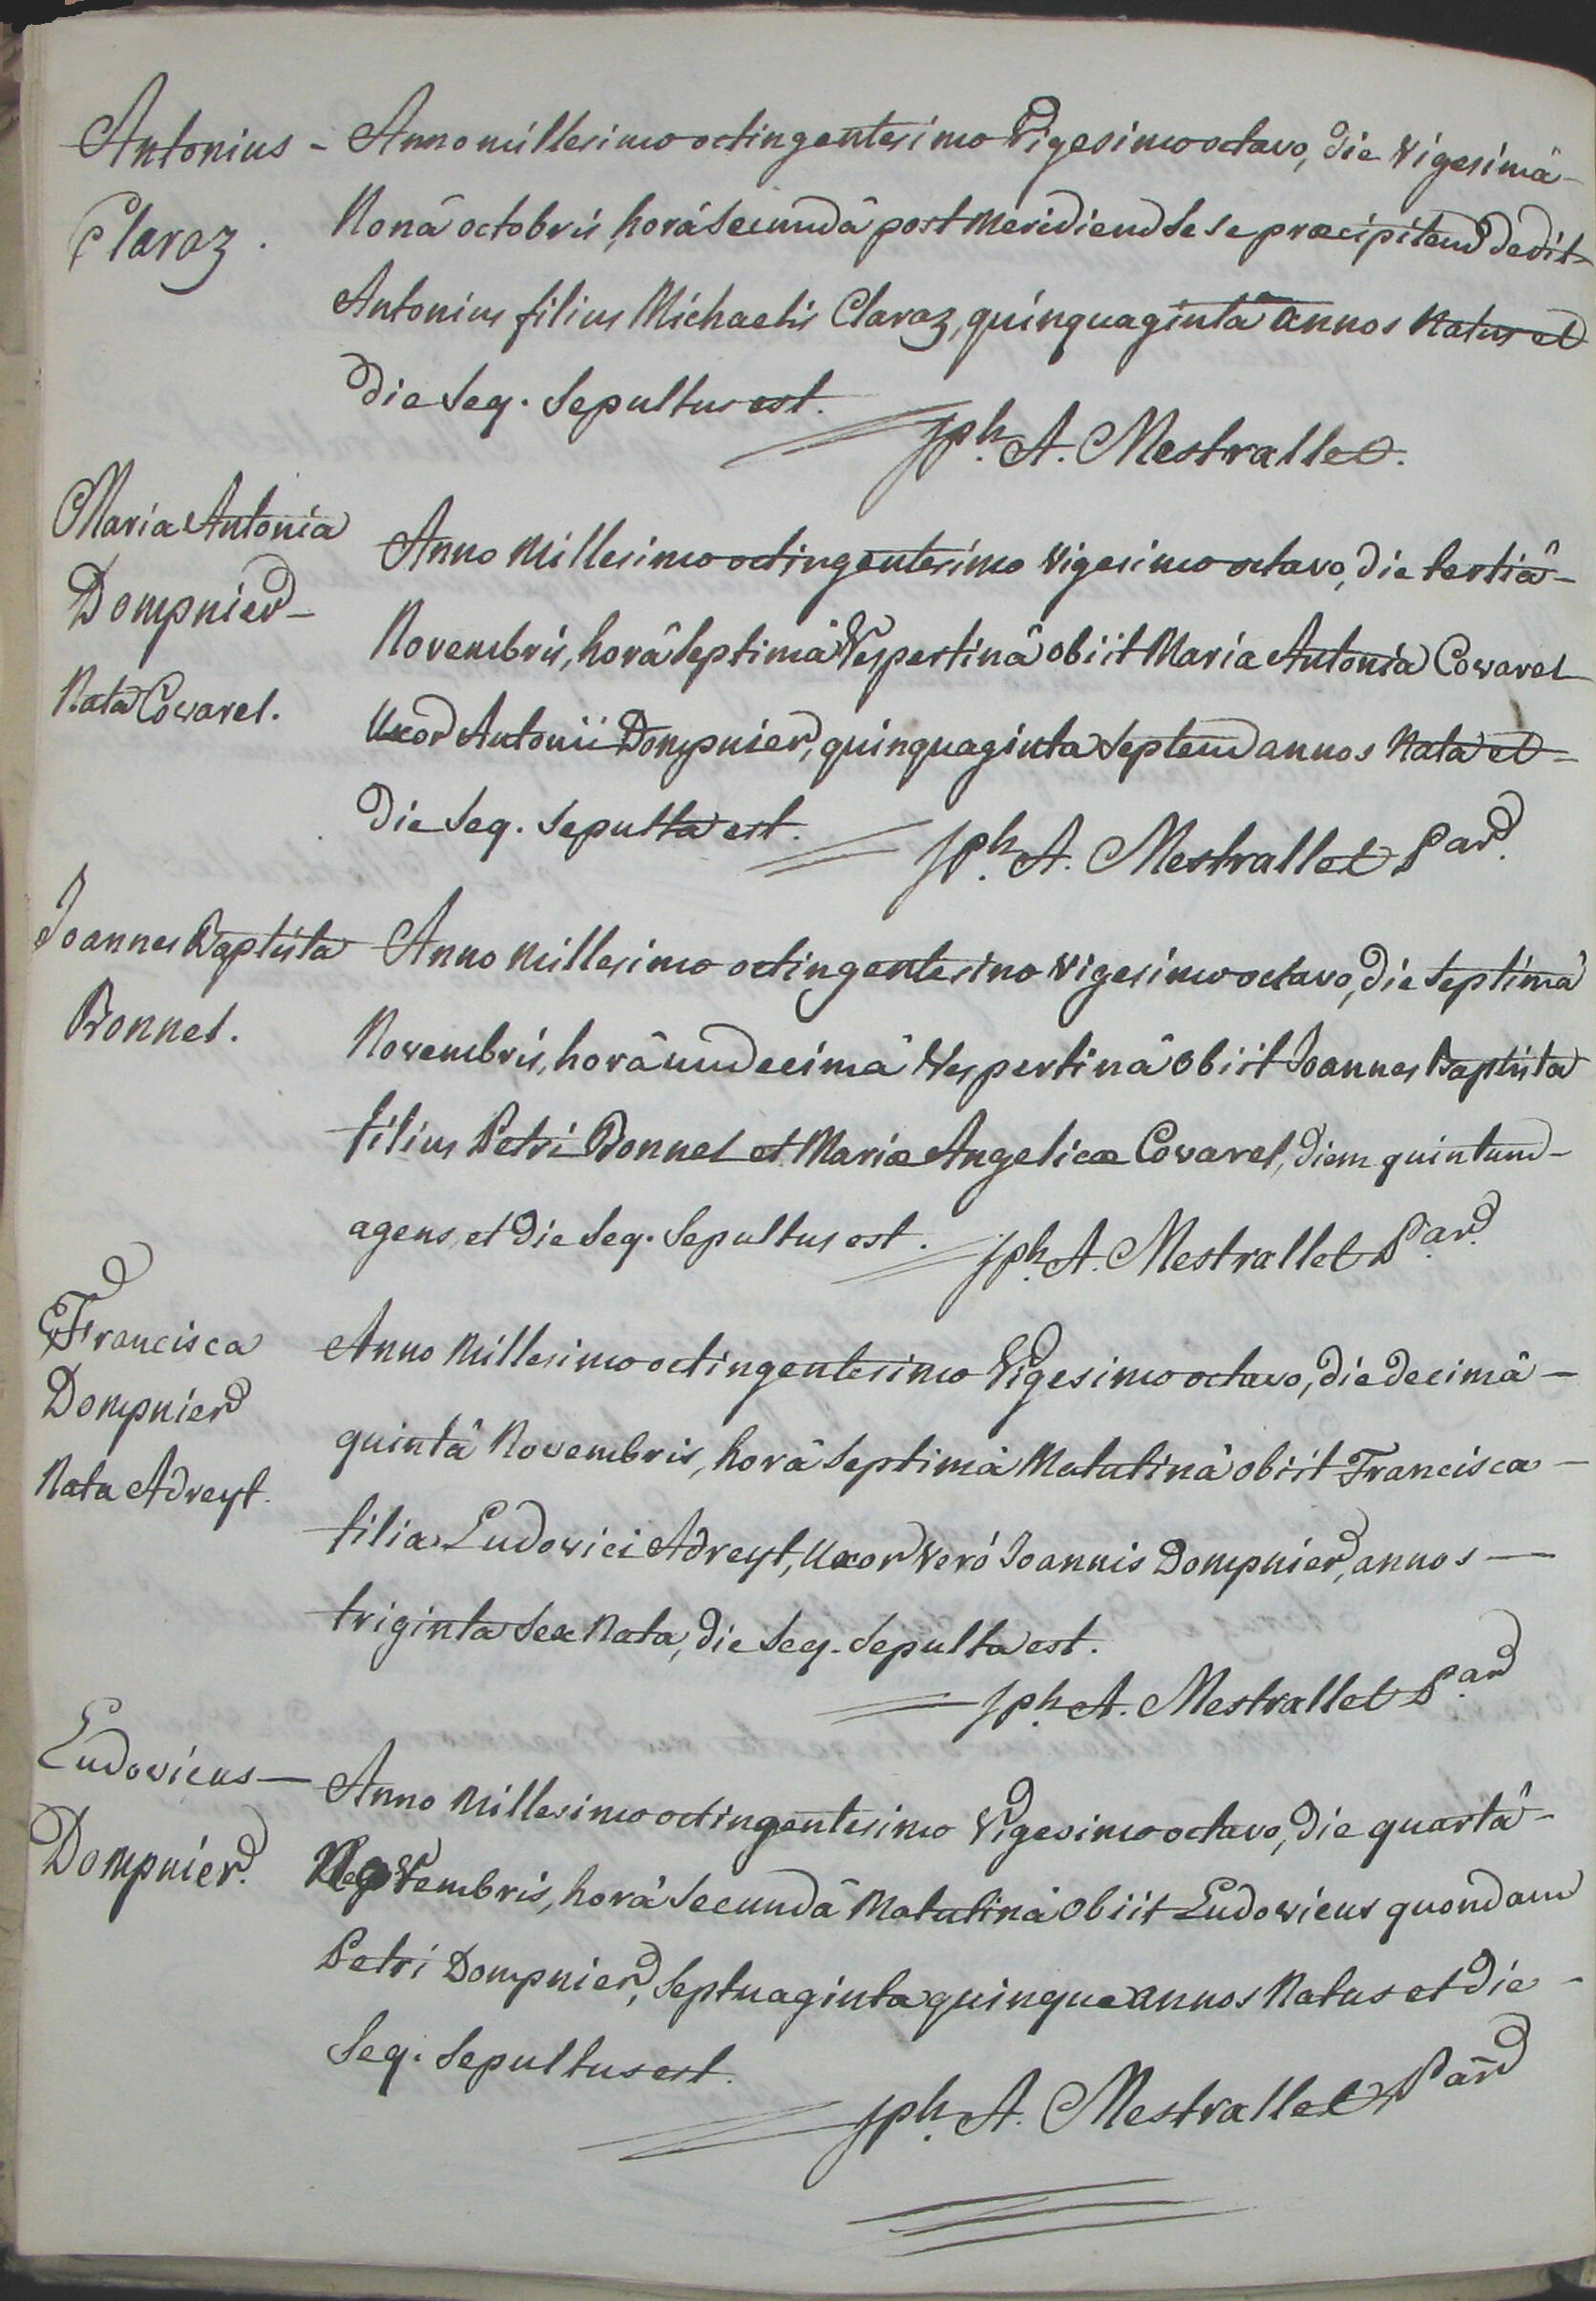 Antonius - Anno millesimo octingentesimo Vigesimo octavo, die vigesimâ
Claraz. Nonâ octobris, horâ Secundâ post meridiem Se se praecipitem dedit
Antonius filius Michaelis Claraz, quinquaginta annos Natus et
die Seq. Sepultus est.
Jph. A. Mestrallet.
Maria Antonia
Dompnier
Nata Covarel.
Anno Millesimo octingentesimo vigesimo octavo, die tertiâ
Novembris, horâ Septimâ Vespertinâ obiit Maria Antonia Covarel
Uxor Antonii Dompnier, quinquaginta Septem annos Nata et
die Seq. Sepulta est.
Jph. A. Mestrallet Par.
Joannes Baptista
Bonnel.
Anno Millesimo octingentesimo vigesimo octavo, die Septimâ
Novembris, horâ undecimâ Vespertinâ obiit Joannes Baptista
filius Petri Bonnel et Mariae Angelicae Covarel, diem quintum
agens, et die Seq. Sepultus est.
Jph. A. Mestrallet Par.
Francisca
Dompnier
Nata Adreyt.
Anno Millesimo octingentesimo Vigesimo octavo, die decimâ
quintâ Novembris, horâ Septimâ Matutinâ obiit Francisca
filia Ludovici Adreyt, Uxor Verò Joannis Dompnier, annos
triginta Sex Nata, die Seq. Sepulta est.
Jph. A. Mestrallet Par.
Ludovicus
Dompnier.
Anno Millesimo octingentesimo Vigesimo octavo, die quartâ
horâ Secundâ Matutinâ obiit Ludovicus quondam
Petri Dompnier, Septuaginta quinque annos Natus et die
Seq. Sepultus est.
Jph. A. Mestrallet Par